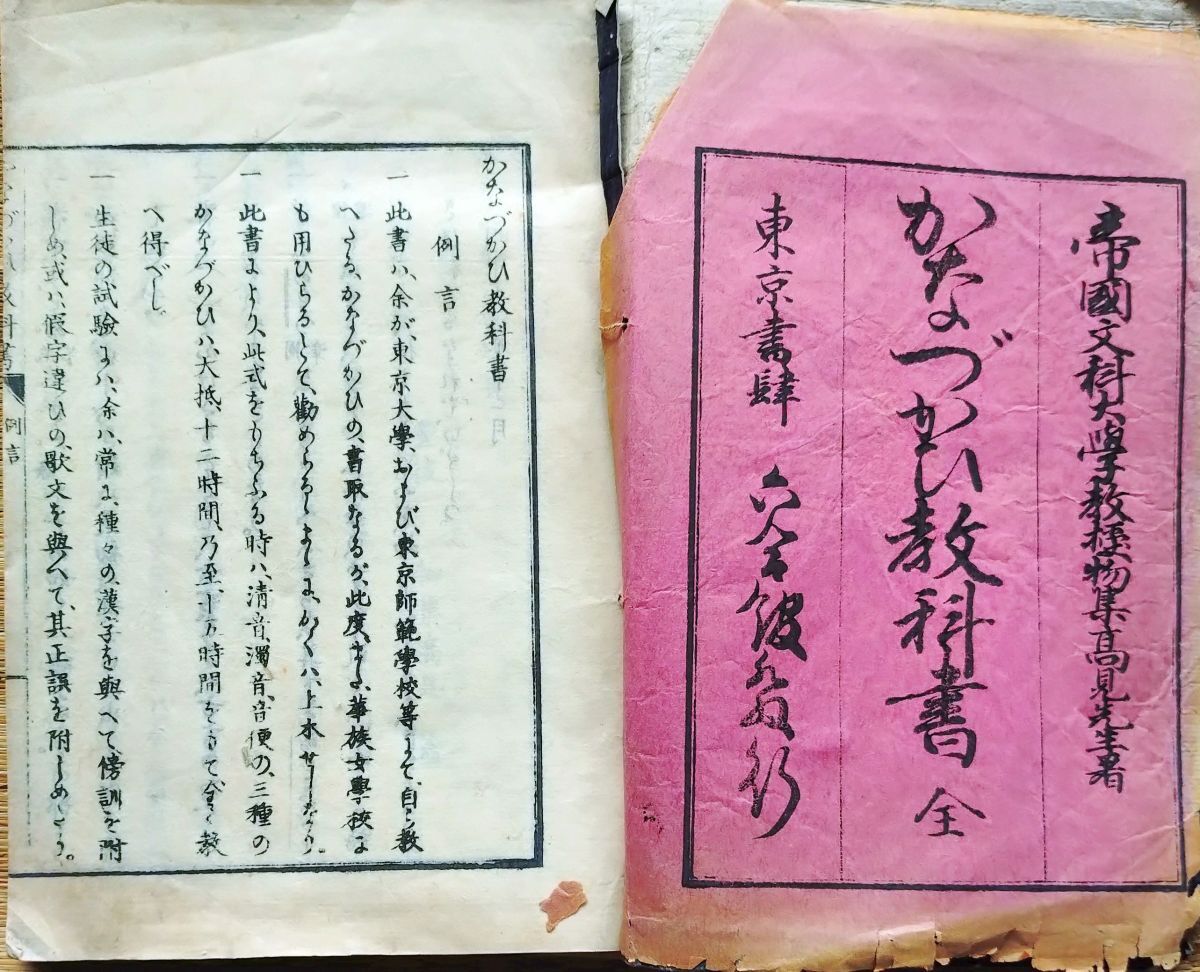 帝國文科大學教授物集高見先生著
かなづかひ教科書 全
東京書肆 六合館發行
かなづかひ教科書
例言
一 此書ハ、余が、東京大學、および、東京師範學校等にて、自ら教
へたる、かなづかひの、書取なるが、此度、また、華族女學校に
も用ひらるゝとて、勸めらるゝまゝに、かくハ、上木せしなり。
一 此書により、此式をもちふる時ハ、清音、濁音、音便の、三種の
かなづかひハ、大抵、十二時間、乃至、十五時間をもて、全く教
へ得べし。
一 生徒の試驗にハ、余ハ、常に、種々の漢字を與へて、傍訓を附
しめ、或ハ、假字違ひの、歌文を與へて、其正誤を附しめたり。
かなづかひ教科書
例言